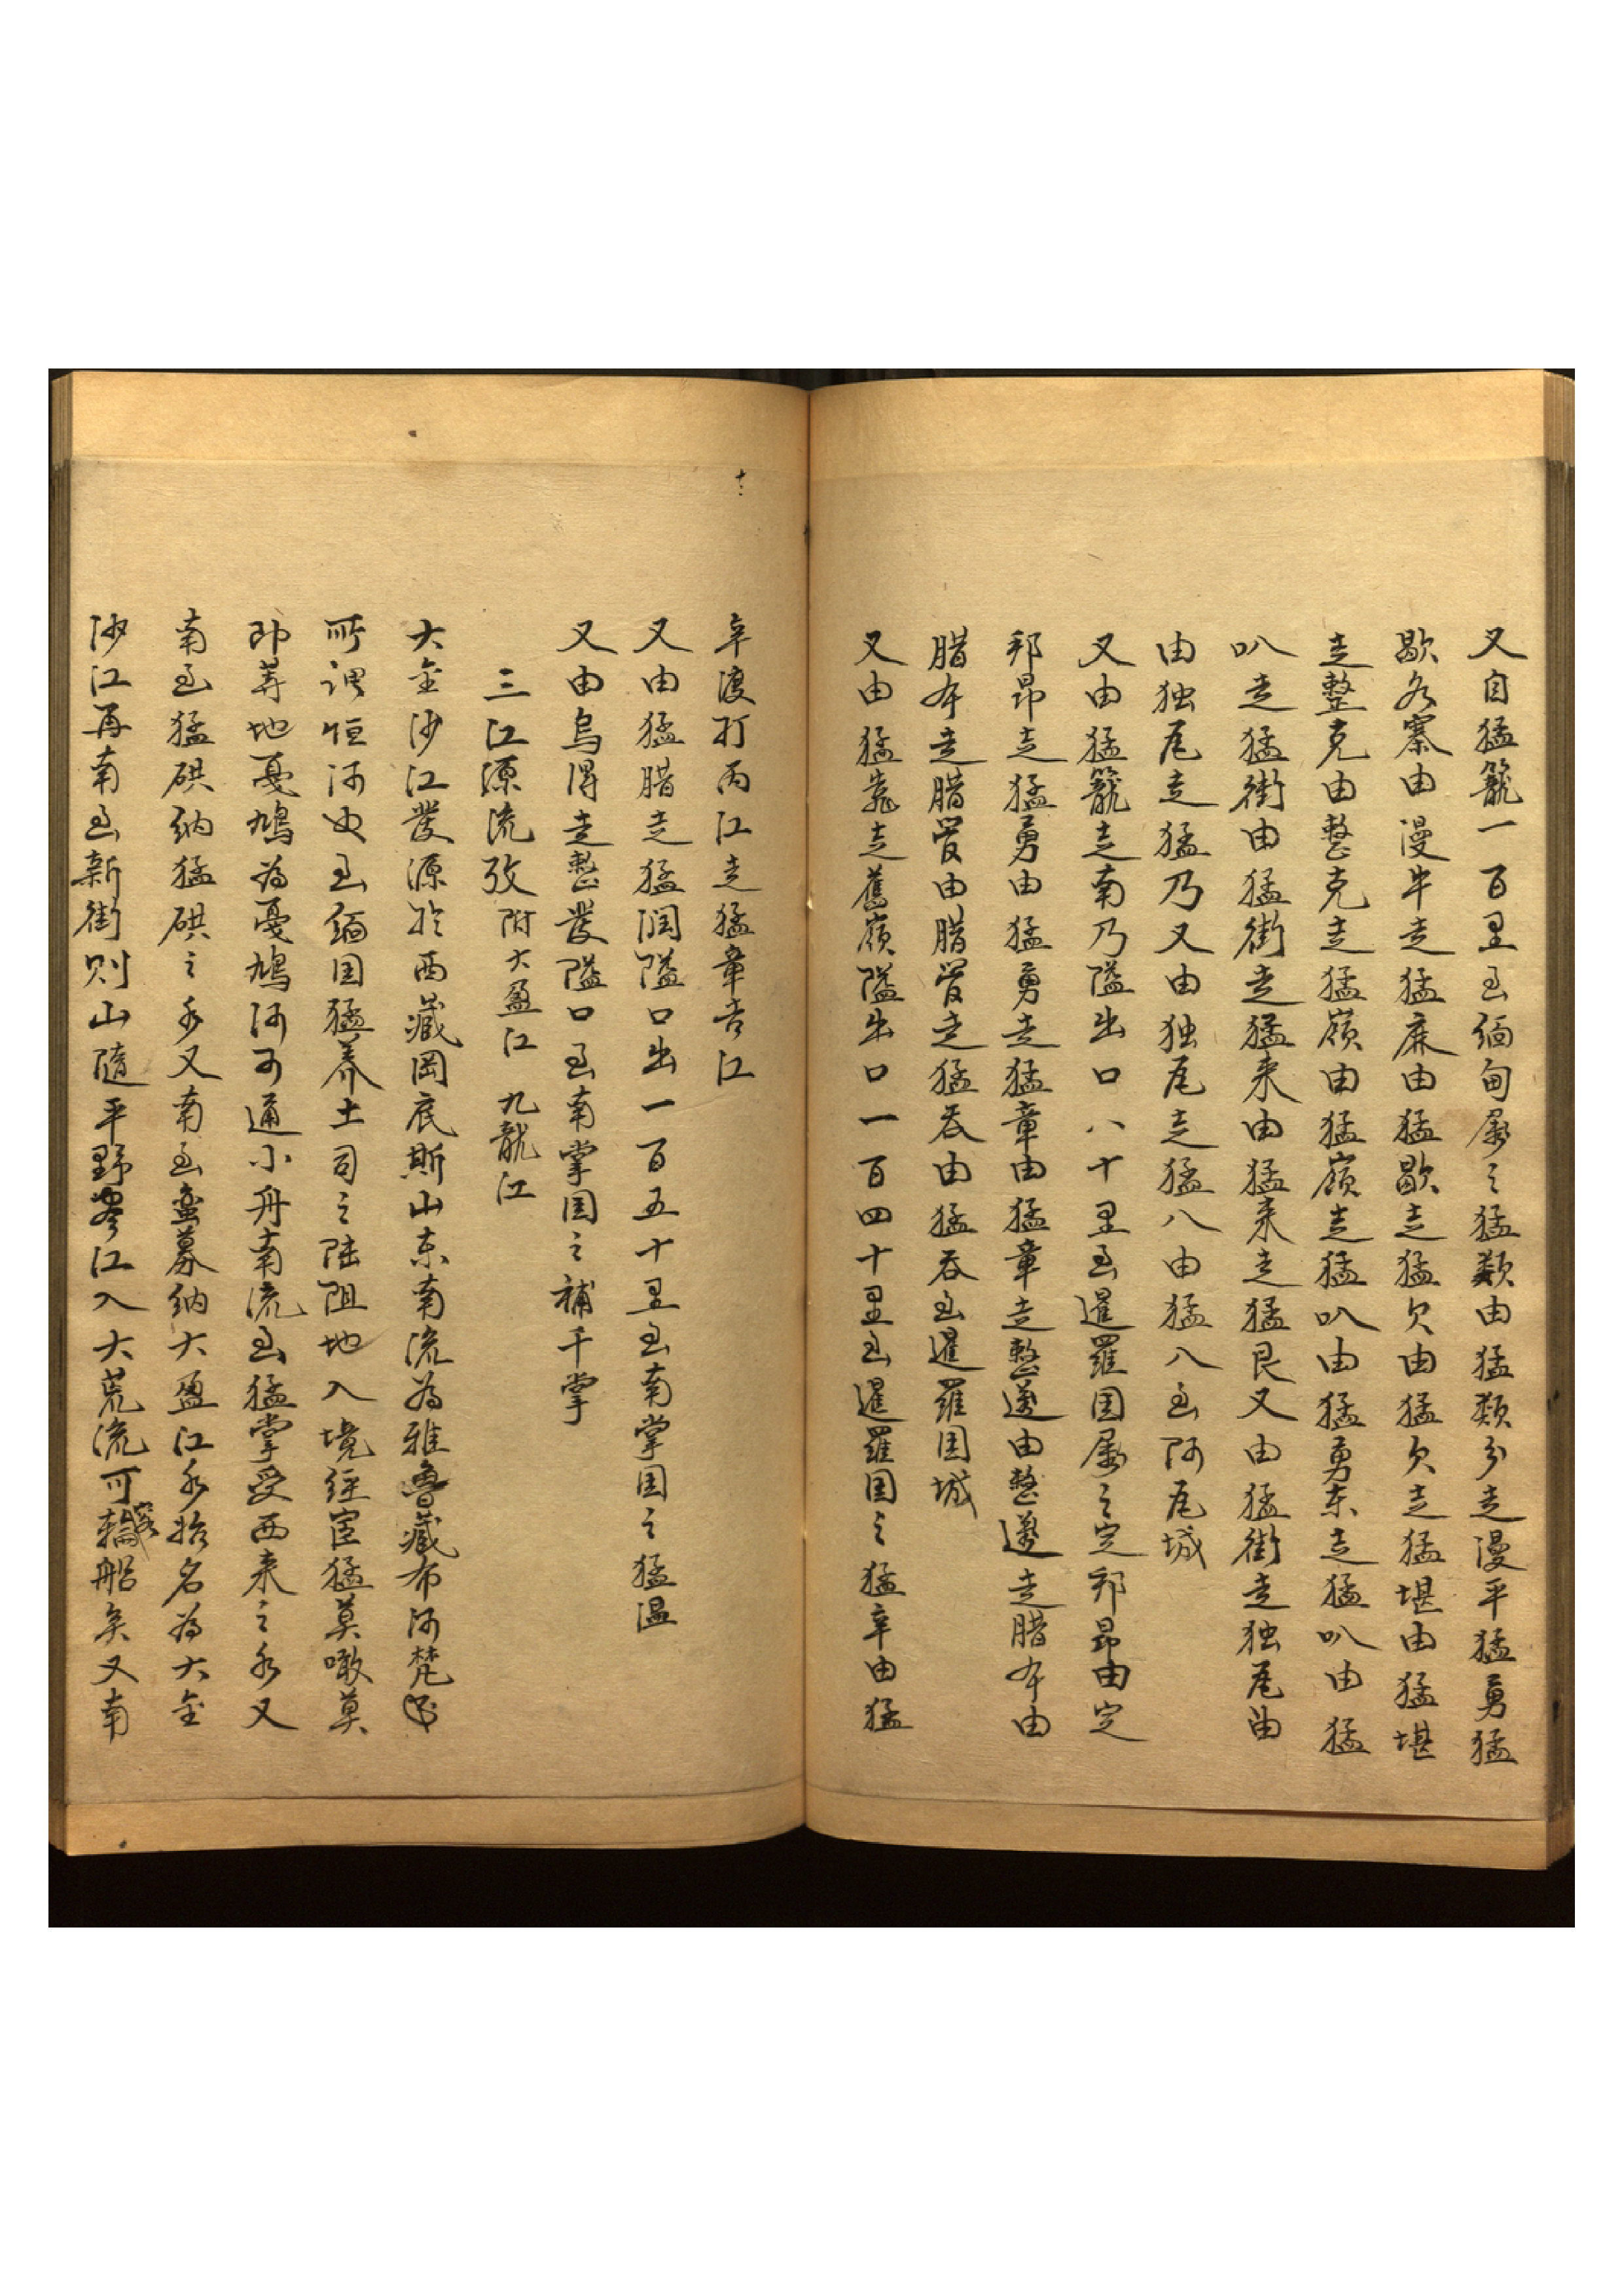 又自猛籠一百里至缅甸屬之猛類由猛類分走漫平猛勇猛
歇各寨由漫牛走猛麻由猛歇走猛欠由猛欠走猛堪由猛堪
走整克由整克走猛嶺由猛嶺走猛叭由猛勇东走猛叭由猛
叭走猛街由猛街走猛来由猛来走猛艮又由猛街走独尾由
由独尾走猛乃又由独尾走猛八由猛八至阿尾城
又由猛籠走南乃隘出口八十里至暹羅国屬之定邦昂由定
邦昂走猛勇由猛勇走猛章由猛章走整邁由整邁走腊本由
腊本走腊管由腊管走猛吞由猛吞至暹羅国城
又由猛竜走舊嶺隘出口一百四十里至暹羅国之猛辛由猛
十二
辛渡打丙江走猛章吉江
又由猛腊走猛润隘口出一百五十里至南掌国之猛温
又由烏得走整發隘口至南掌国之補千掌
三江源流攷附大盈江 九龍江
大金沙江發源於西藏岡底斯山东南流為雅魯藏布河梵
所谓恒河也至缅国猛养土司之陆阻地入境经宦猛莫噉莫
即莽地戞鳩為戞鳩河可通小舟南流至猛掌受西来之水又
南至猛硔纳猛硔之水又南至蛮募纳大盈江水始名為大金
沙江再南至新街则山隨平野 江入大荒流可容輪船矣又南